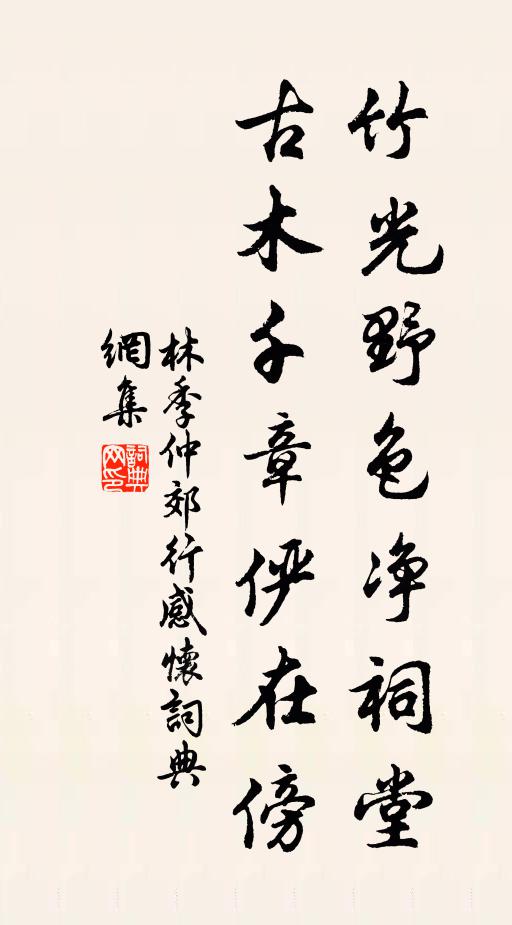 竹光野色净祠堂
古木千章俨在傍
林季仲郊行感懷詞典
網集
詞典网印